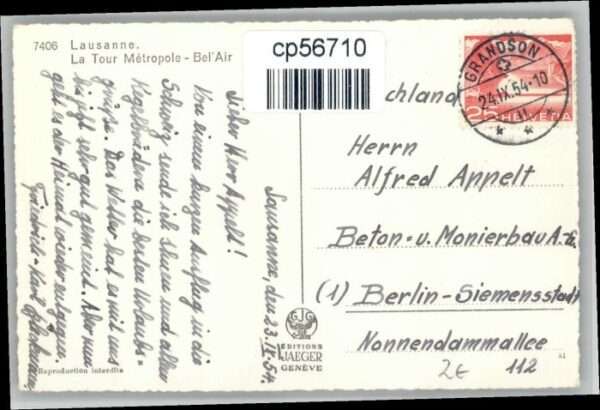 7406 Lausanne.
La Tour Métropole - Bel'Air
cp56710
Lausanne, den 23.IX.54.
Lieber Herr Appelt!
Von einem kurzen Ausflug in die
Schweiz sende ich Ihnen und allen
Kegelbrüdern die besten Urlaubs-
grüße. Das Wetter hat es mit uns
bis jetzt sehr gut gemeint. Aber nun
geht es der Heimat wieder entgegen.
Friedrich-Karl
Reproduction interdite
EDITIONS
JAEGER
GENÈVE
GRANDSON
24.IX.54-10
25 HELVETIA
chland
Herrn
Alfred Appelt
Beton- u. Monierbau A.-G.
(1) Berlin-Siemensstadt
Nonnendammallee
112
2€